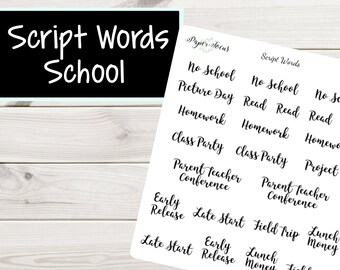 Script Words
School
Script Words
No School No School No
Picture Day Read Read Read
Homework Homework Homework
Class Party Class Party Project
Parent Teacher
Conference
Parent Teacher
Conference
Early
Release
Late Start Field Trip
Lunch
Money
Late Start
Early
Release
Lunch
Money
Field